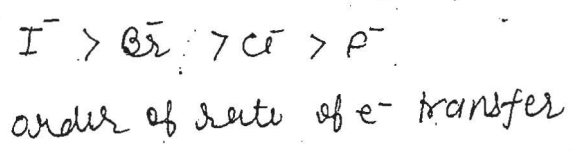 I⁻ > Br⁻ > Cl⁻ > F⁻
order of rate of e⁻ transfer